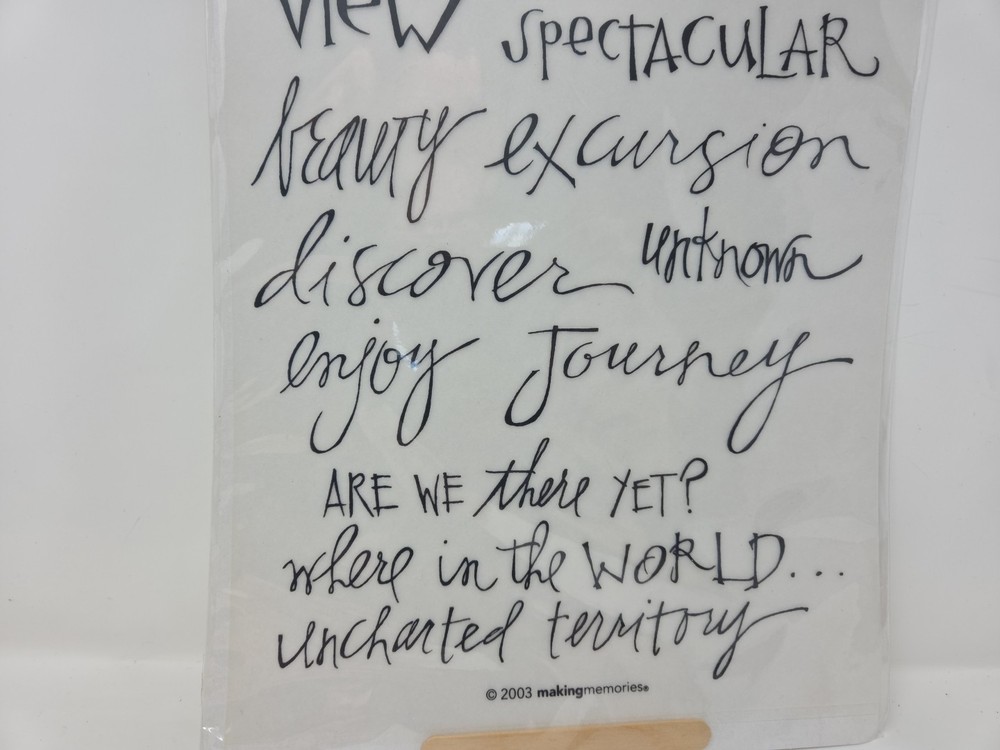 view spectacular
beauty excursion
discover unknown
enjoy Journey
ARE WE there YET?
where in the WORLD...
uncharted territory
© 2003 makingmemories®